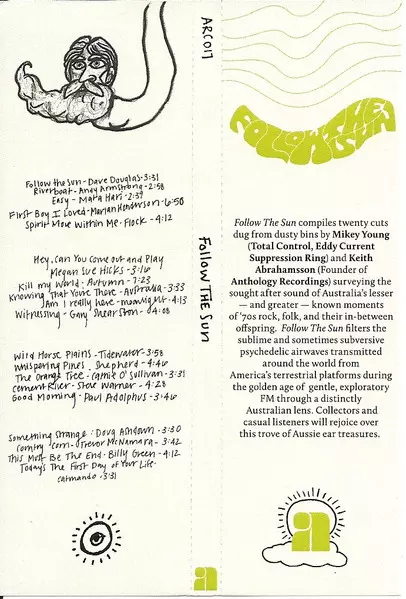 Follow the Sun - Dave Douglas - 3:31
Riverboat - Andy Armstrong - 2:58
Easy - Mata Hari - 2:39
First Boy I Loved - Marian Henderson - 6:50
Spirit Move Within Me - Flock - 4:12
Hey, Can You Come out and Play
Megan Sue Hicks - 3:16
Kill my World - Autumn - 7:23
Knowing That You're There - Australia - 3:33
Am I really here - moonlight - 4:13
Witnessing - Gary Shearston - 4:08
Wild Horse Plains - Tidewater - 3:58
Whispering Pines - Shepherd - 4:46
The Orange Tree - Cathie O'Sullivan - 3:31
Cement River - Shane Warner - 4:28
Good Morning - Paul Adolphus - 3:46
Something Strange - Doug Ashdown - 3:30
Comfny Corn - Trevor McNamara - 3:42
This Must Be The End - Billy Green - 4:12
Today's The First Day of Your Life -
catmando - 3:31
ARC017
Follow The Sun
a
FOLLOW THE
SUN
Follow The Sun compiles twenty cuts
dug from dusty bins by Mikey Young
(Total Control, Eddy Current
Suppression Ring) and Keith
Abrahamsson (Founder of
Anthology Recordings) surveying the
sought after sound of Australia's lesser
— and greater — known moments
of '70s rock, folk, and their in-between
offspring. Follow The Sun filters the
sublime and sometimes subversive
psychedelic airwaves transmitted
around the world from
America's terrestrial platforms during
the golden age of gentle, exploratory
FM through a distinctly
Australian lens. Collectors and
casual listeners will rejoice over
this trove of Aussie ear treasures.
a